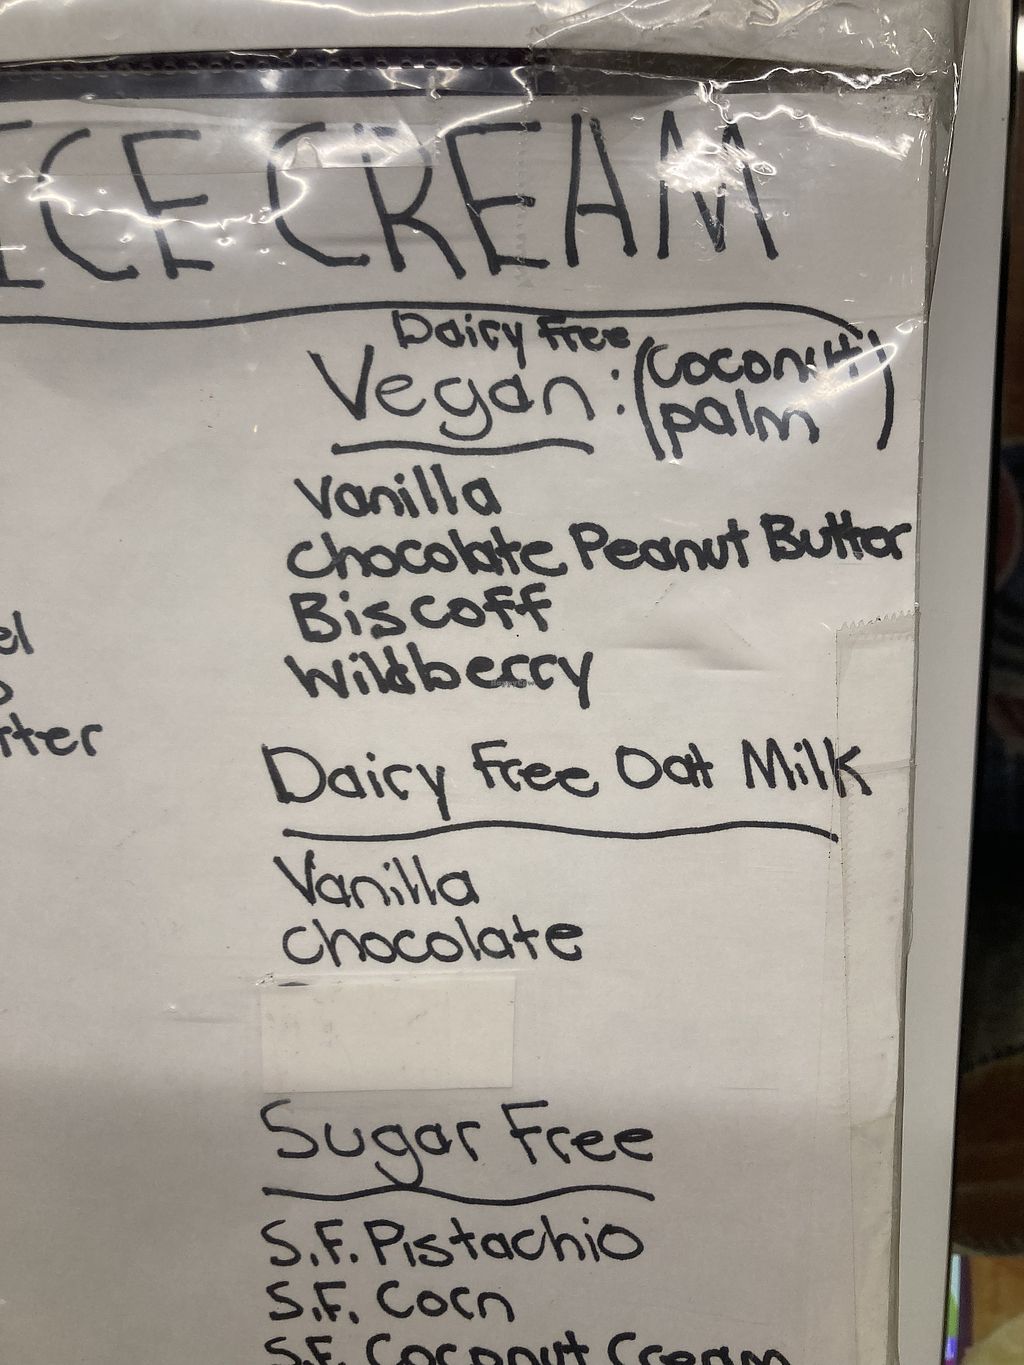 ICE CREAM
Dairy Free
Vegan: (coconut
palm)
Vanilla
Chocolate Peanut Butter
Biscoff
Wildberry
Dairy Free Oat Milk
Vanilla
Chocolate
Sugar Free
S.F. Pistachio
S.F. Corn
S.F. Coconut Cream